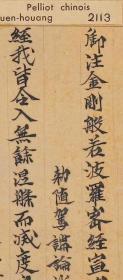 Pelliot chinois
uen-houang 2113
御注金剛般若波羅蜜經宣
勑随駕講論
經我皆令入無餘涅槃而滅度